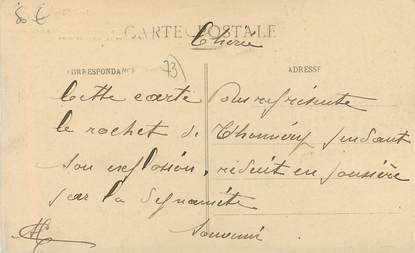 8 €
CARTE POSTALE
Chérie
CORRESPONDANCE
73
ADRESSE
Cette carte vous représente
le rochet de Thonnéry pendant
son explosion, réduit en poussière
par la dynamite
Souvenir